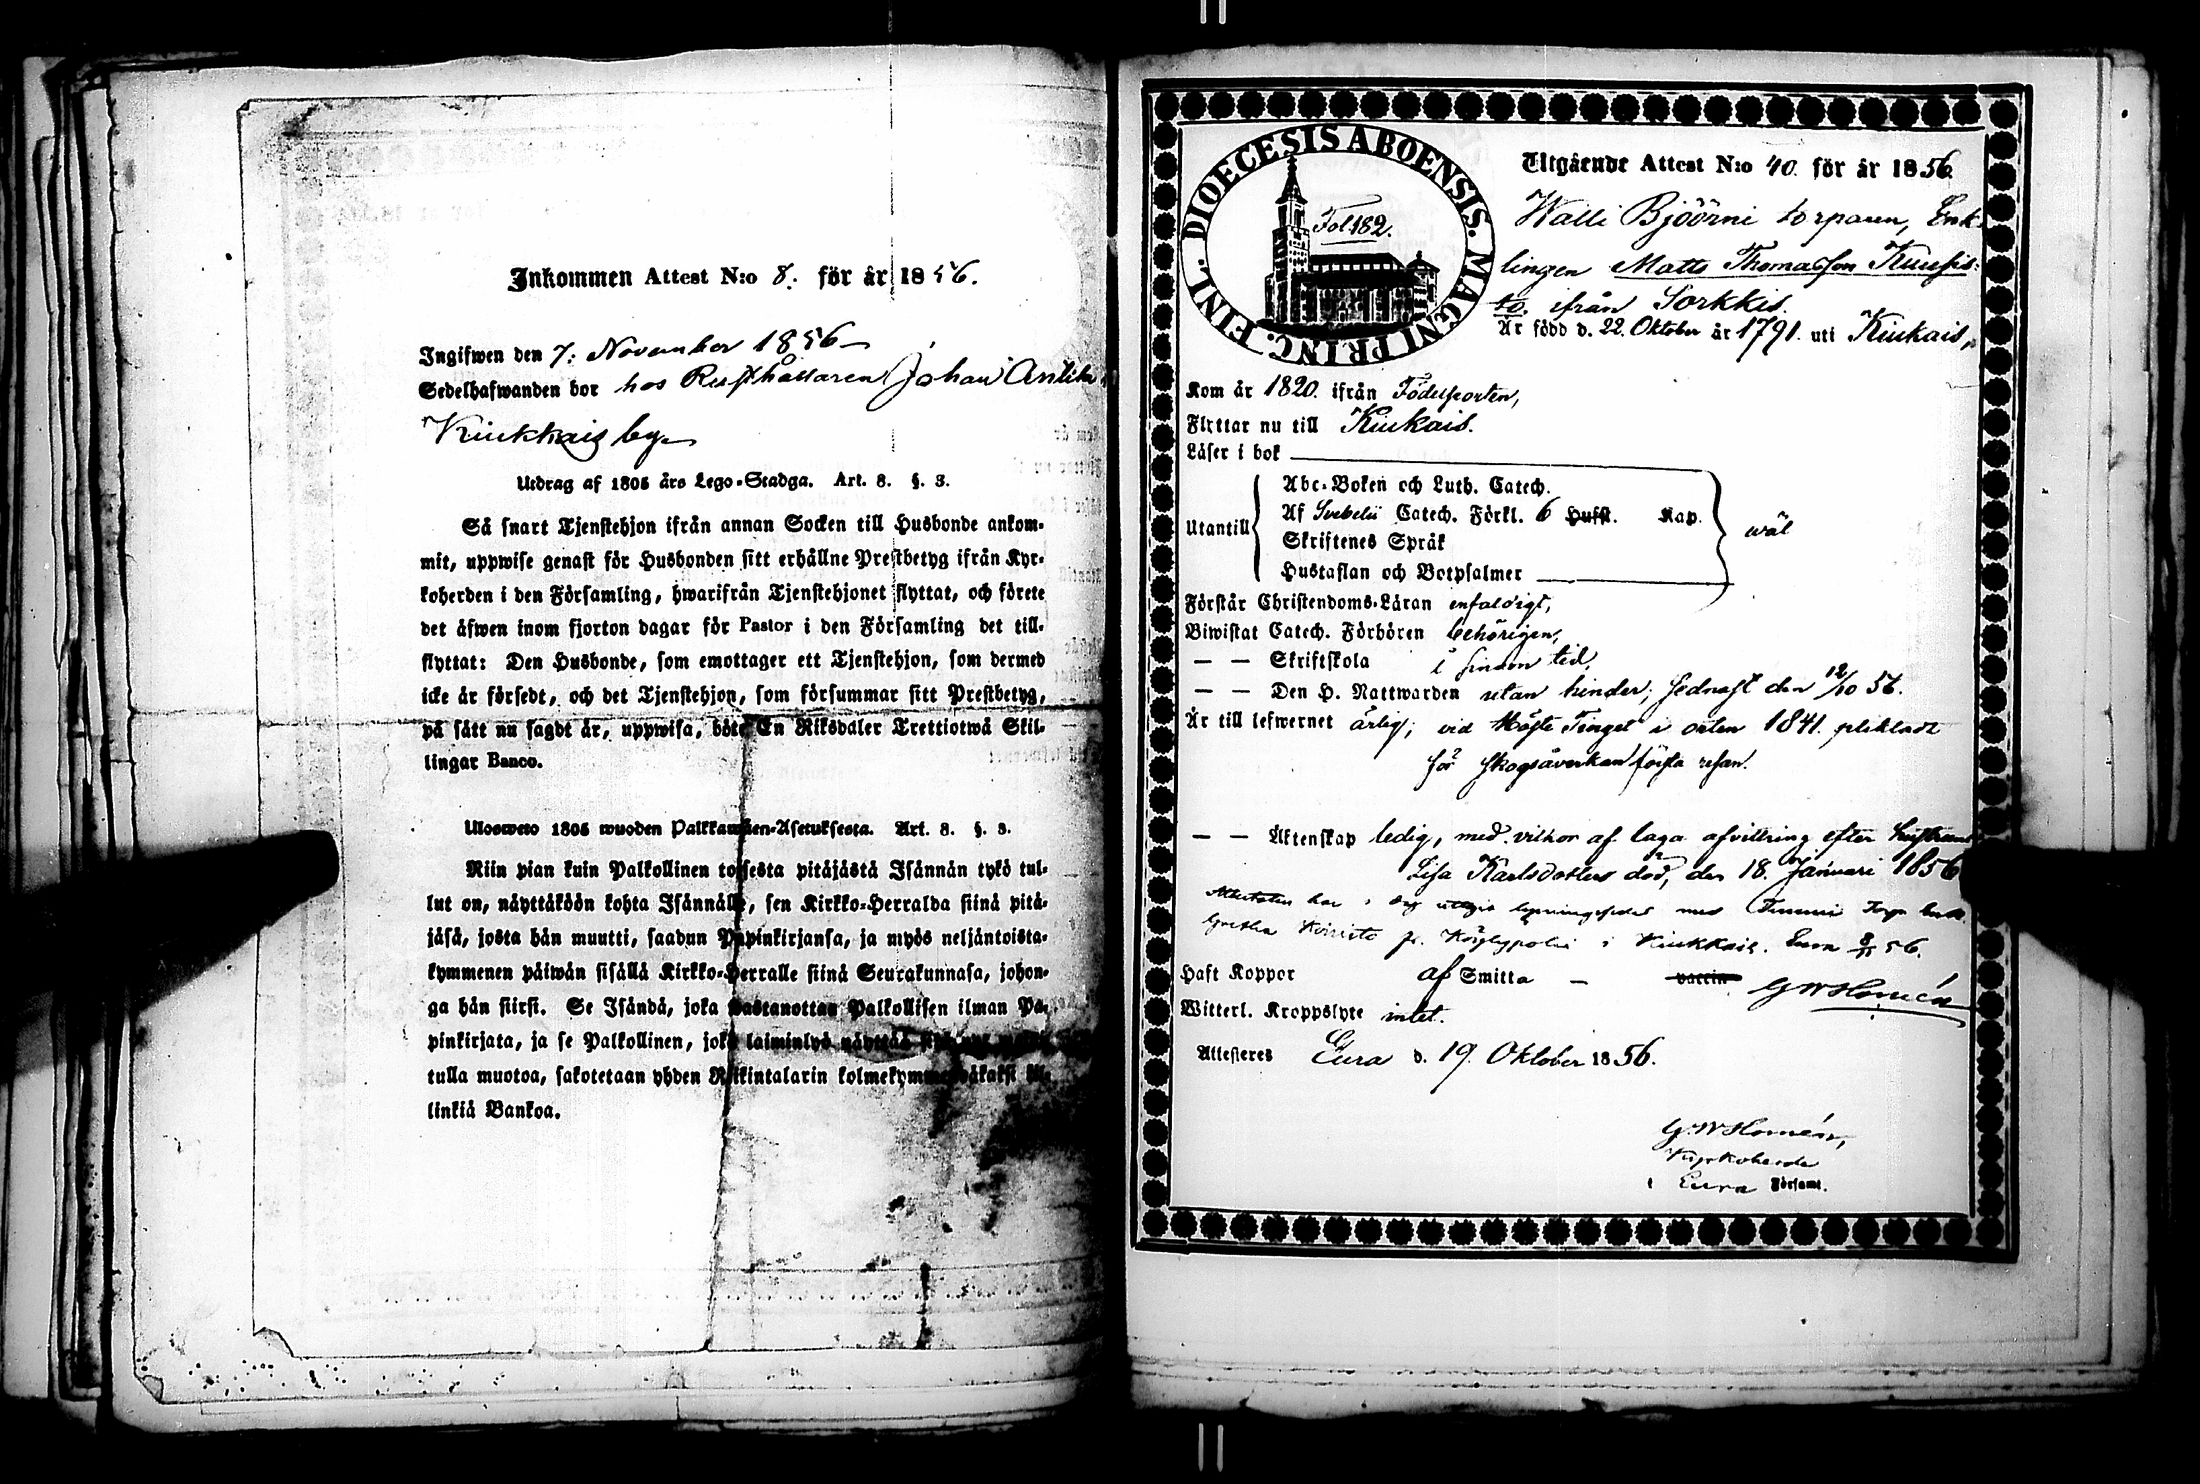 Inkommen Attest N:o 8. för år 1856.
Ingifwen den 7: November 1856
Sedelhafwanden bor hos Rusthållaren Johan Antila
Kiukkais by
Utdrag af 1805 års Lego-Stadga. Art. 8. §. 3.
Så snart Tjenstehjon ifrån annan Socken till Husbonde ankom-
mit, uppwise genast för Husbonden sitt erhållne Prestbetyg ifrån Kyr-
koherden i den Församling, hwarifrån Tjenstehjonet flyttat, och förete
det äfwen inom fjorton dagar för Pastor i den Församling det till-
flyttat: Den Husbonde, som emottager ett Tjenstehjon, som dermed
icke är försedt, och det Tjenstehjon, som försummar sitt Prestbetyg,
på sätt nu sagdt är, uppwisa, böte En Riksdaler Trettiotwå Skil-
lingar Banco.
Ulosweto 1805 wuoden Palkkawäen-Asetuksesta. Art. 8. §. 3.
Niin pian kuin Palkollinen toisesta pitäjästä Isännän tykö tul-
lut on, näyttäköön kohta Isännälle, sen Kirkko-Herralda siinä pitä-
jäsä, josta hän muutti, saadun Papinkirjansa, ja myös neljäntoista-
kymmenen päiwän sisällä Kirkko-Herralle siinä Seurakunnasa, johon-
ga hän siirsi. Se Isändä, joka wastanottaa Palkollisen ilman Pa-
pinkirjata, ja se Palkollinen, joka laiminlyö näyttää
tulla muotoa, sakotetaan yhden Riikintalarin kolmekymmentäkaksi kil-
linkiä Bankoa.
DIOECESIS ABOENSIS. MAGNI PRINC. FINL.
Fol. 182.
Utgående Attest N:o 40. för år 1856.
Walli Bjöörni torparen, Enk-
lingen Matts Thomasson Kuusis-
to, ifrån Sorkkis.
Är född d. 22. Oktober år 1791. uti Kiukais,
Kom år 1820. ifrån Födelseorten,
Flyttar nu till Kiukais.
Läser i bok
Utantill
Abc-Boken och Luth. Catech.
Af Svebelii Catech. Förkl. 6 Hufst. Kap.
Skriftenes Språk
Hustaflan och Botpsalmer
wäl
Förstår Christendoms-Läran enfaldigt,
Biwistat Catech. Förhören behörigen,
— — Skriftskola i sinom tid,
— — Den H. Nattwarden utan hinder; sednast den 12/10 56.
Är till lefwernet ärlig; vid Höste Tinget i orten 1841. pliktadt
för skogsåverkan första resan.
— — Äktenskap ledig, med vilkor af laga afvittring efter hustruns
Lisa Karlsdotters död, den 18. Januari 1856
Attestaten har i dag utbytts lysningssedel med
Gretha Koivisto fr. i Kiukkais. Eura 8/11 56.
G W Homén
Haft Koppor af Smitta — vaccin
Witterl. Kroppslyte intet.
Attesteres Eura d. 19. Oktober 1856.
G. W Homén,
Kyrkoherde
i Eura Församl.